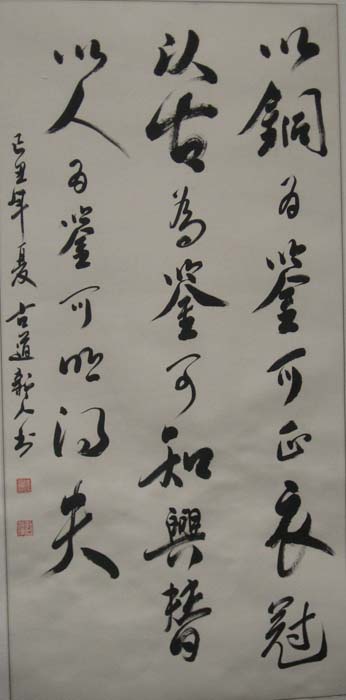 以銅為鑒可正衣冠
以古為鑒可知興替
以人為鑒可明得失
己丑年夏 古道新人書